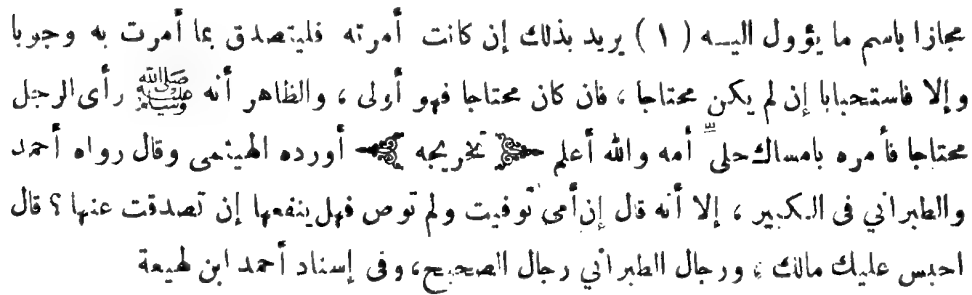 مجازا باسم ما يؤول اليـه ( ١ ) يريد بذلك إن كانت أمرته فليتصدق بما أمرت به وجوبا
وإلا فاستحبابا إن لم يكن محتاجا ، فان كان محتاجا فهو أولى ، والظاهر أنه ﷺ رأى الرجل
محتاجا فأمره بامساك حلىِّ أمه والله أعلم تخريجه أورده الهيثمى وقال رواه أحمد
والطبرانى فى الكبير ، إلا أنه قال إن أمى توفيت ولم توص فهل ينفعها إن تصدقت عنها ؟ قال
احبس عليك مالك ، ورجال الطبرانى رجال الصحيح، وفى إسناد أحمد ابن لهيعة